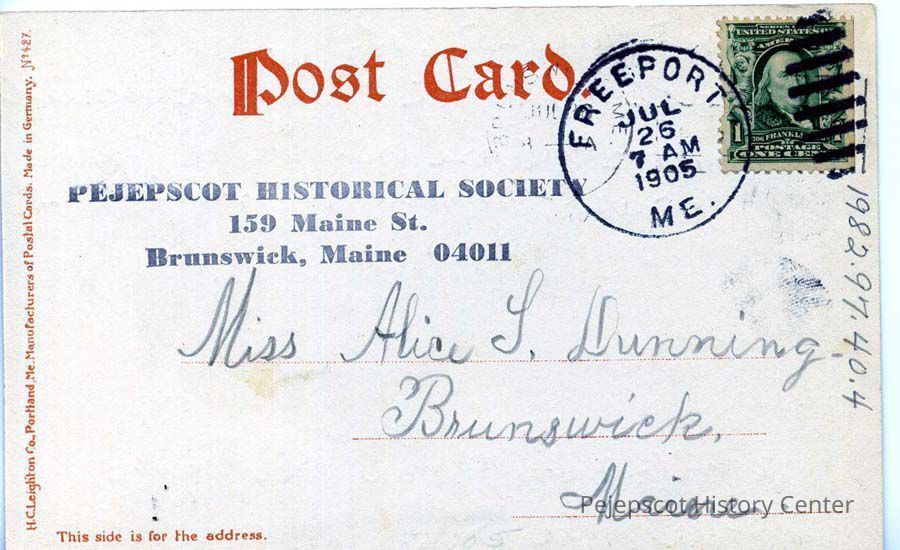 Post Card.
FREEPORT
JUL
26
7 AM
1905
ME.
SERIES 1902
UNITED STATES OF
AMERICA
FRANKLIN
POSTAGE
ONE CENT
PEJEPSCOT HISTORICAL SOCIETY
159 Maine St.
Brunswick, Maine 04011
Miss Alice S. Dunning.
Brunswick,
Maine.
1982.97.40.4
H.C. Leighton Co., Portland, Me. Manufacturers of Postal Cards. Made in Germany. No 427.
This side is for the address.
Pejepscot History Center